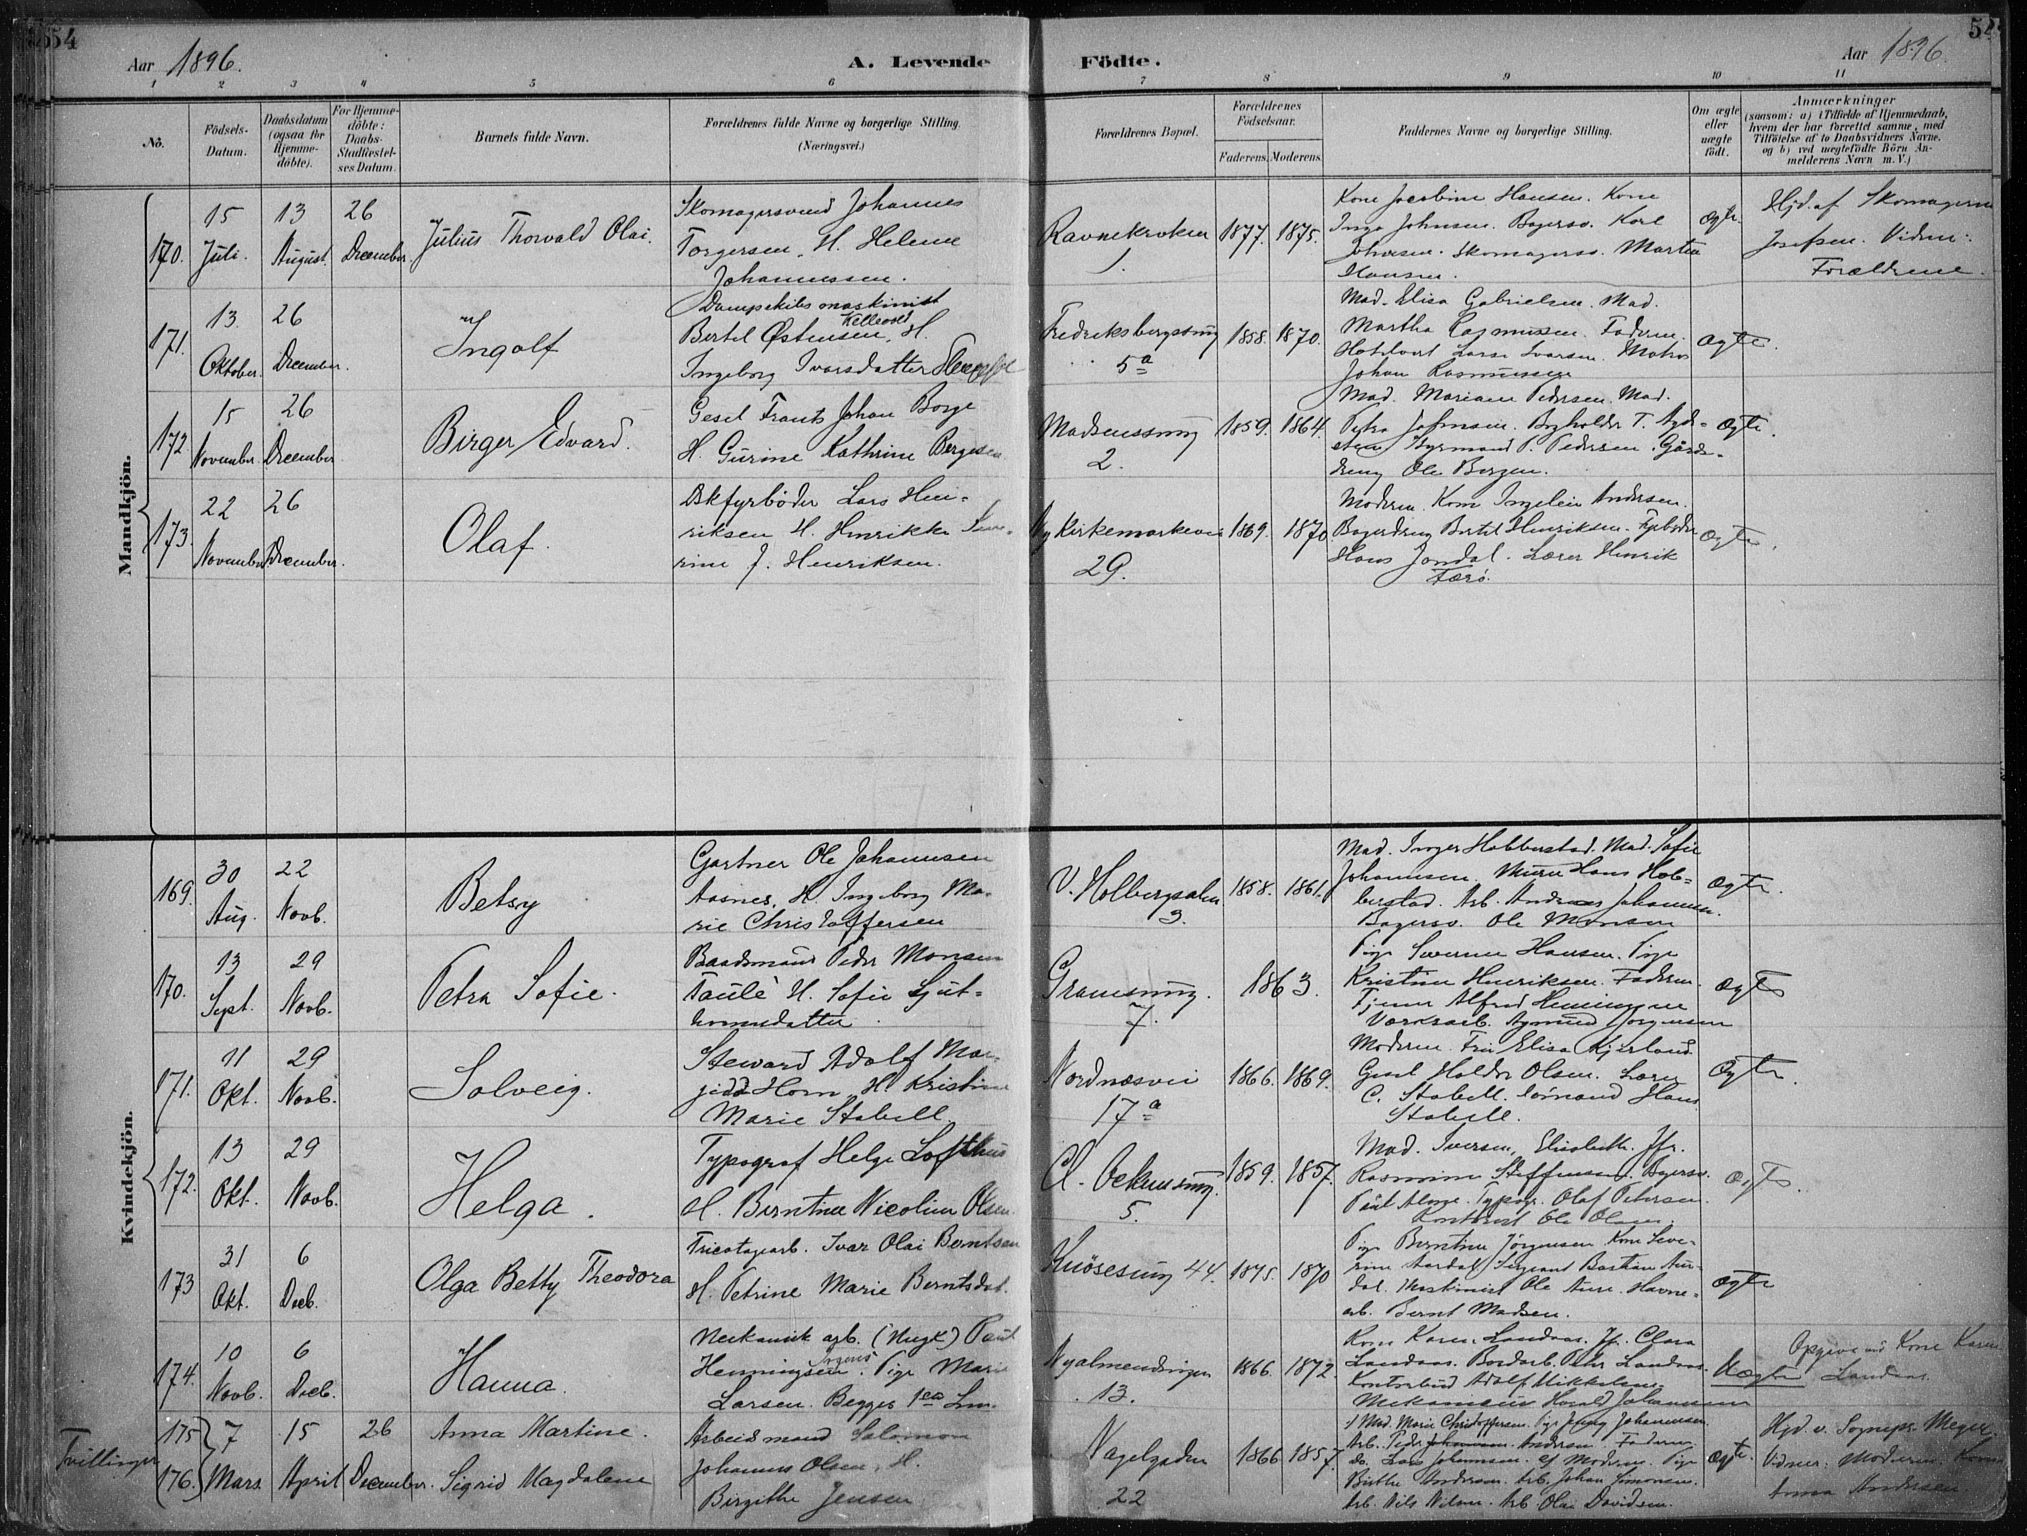 54
54
Aar 1896.
A. Levende
Födte.
Aar 1896.
1 2 3 4 5 6 7 8 9 10 11
No.
Födsels-
Datum.
Daabsdatum
(ogsaa for
Hjemme-
döbte).
For Hjemme-
döbte:
Daabs-
Stadfæstel-
ses Datum.
Barnets fulde Navn.
Forældrenes fulde Navne og borgerlige Stilling.
(Næringsvei.)
Forældrenes Bopæl.
Forældrenes
Födselsaar.
Faderens. Moderens.
Faddernes Navne og borgerlige Stilling.
Om ægte
eller
uægte
födt.
Anmærkninger
(saasom: a) i Tilfælde af Hjemmedaab,
hvem der har forrettet samme, med
Tilföielse af to Daabsvidners Navne.
og b) ved uægtefödte Börn An-
melderens Navn m. V.)
Mandkjön.
170.
15
Juli.
13
August.
26
December.
Julius Thorvald Olai.
Skomagersvend Johannes
Torgersen, H. Helene
Johannessen.
Ravnekroken
1.
1877. 1875.
Kone Jacobine Hansen. Kone
Inga Johnsen. Bagersv. Karl
Johnsen. Skomagersv. Martin
Hansen.
Ægte.
Hjd. af Skomagerm
Josefsen. Vidner:
Forældrene.
171.
13.
Oktober.
26
December.
Ingolf
Dampskibsmaskinist
Kellevold
Bertel Østensen, H.
Ingeborg Ivarsdatter
Fredriksbergssmug
5a
1858. 1870.
Mad. Elisa Gabrielsen. Mad.
Martha Rasmussen. Faderen.
Lars Ivarsen. Matros
Johan Rasmussen
Ægte.
172
15
November.
26
December
Birger Edvard.
Gesel Frants Johan Borge
H. Gurine Kathrine Bergesen
Madsenssmug
2.
1859. 1864.
Mad. Mariane Pedersen. Mad.
Petra Johnsen. Bogholder T.
Styrmand P. Pedersen. Gårds-
dreng Ole Bergen.
Ægte.
173.
22
November
26
December.
Olaf.
Dskfyrbøder Lars Hen-
riksen H. Henrikke
rine J. Henriksen.
Ny Kirkemarkevei
29.
1869. 1870
Moderen. Kone Ingeleiv Andersen.
Bagerdreng Bertel Henriksen. Fyrbøder
Hans Jondal. Lærer Henrik
Færø.
Ægte.
Kvindekjön.
169.
30
Aug.
22
Novb.
Betsy
Gartner Ole Johannesen
Aasnes, H. Ingeborg Ma-
rie Christoffersen
V. Holbergsalm
3.
1858. 1861.
Mad. Inger Hobberstad. Mad. Sofie
Johannesen. Murer Hans Hob-
berstad. Arb. Andreas Johannesen.
Bagersv. Ole Monsen
Ægte.
170.
13
Sept.
29
Novb.
Petra Sofie.
Baadsmand Peder Monsen
Taule H. Sofie Gut-
tormsdatter.
Gramsmug.
7.
1863.
Pige Severine Hansen. Pige
Kristine Henriksen. Faderen.
Tjener Alfred Henningsen
Værksarb. Agmund Jørgensen
Ægte
171.
11
Okt.
29
Novb.
Solveig.
Steward Adolf Mar-
Horn, H. Kristine
Marie Stabell.
Nordnæsvei
17a
1866. 1869.
Moderen. Frk Elisa Kjerland.
Gesel Haldor Olsen. Lærer
C. Stabell. Sømand Hans
Stabell.
Ægte.
172.
13
Okt.
29
Novb.
Helga.
Typograf Helge Lofthus
H. Berntine Nicoline Olsen
Cl. Ockensmug.
5.
1859. 1857.
Mad. Iversen, Elisabeth. Jfr.
Rasmine Steffensen. Bagersv.
Paul Alme. Typogr. Olaf Petersen.
Kontorist Ole Olsen.
Ægte.
173
31
Okt.
6
Decb.
Olga Betty Theodora
Tricotagearb. Ivar Olai Berntsen
H. Petrine Marie Berntsdat.
Knøsesmug 44.
1875. 1870
Pige Berntine Jørgensen Kone Seve-
rine Aardal Sergeant Bastian Aar-
dal. Maskinist Ole Aure. Havne-
arb. Bernt Madsen.
Ægte
174.
10
Novb.
6
Decb.
Hanna.
Mekanisk arb. (Ungk) Paul
Henningsen. Pige Marie
Larsen. Begges 1ste Lm.
Nyalmendingen
13.
1866. 1872.
Kone Karen Landaas. Jf. Clara
Landaas. Bordarb. Peter Landaas.
Kontorbud Adolf Mikkelsen.
Mekaniker Harald Johannesen
Uægte
Opgivet ved Kone Karen
Landaas.
Tvillinger
175
176.
7
Mars
15
April
26
December.
Anna Martine.
Sigrid Magdalene
Arbeidsmand Salomon
Johannes Olsen, H.
Birgithe Jensen
Nagelgaden
22
1866 1857.
1) Mad. Marie Christoffersen. Pige Jenny Johannesen
Arb. Peder Andersen. Faderen.
do. Lars Johannesen. 2) Moderen. Pige
Birthe Andersen. Arb. Johan Simonsen.
Arb. Nils Nilsen. Arb. Olai Davidsen.
Ægte.
Hjd. v. Sognepr. Meyer.
Vidner: Moderen. Kone
Anna Andersen